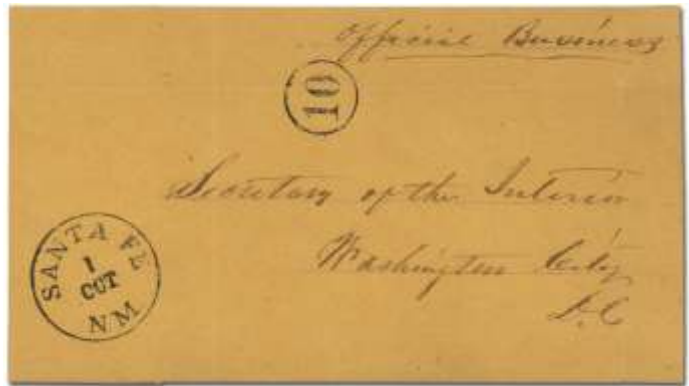 Official Business
10
Secretary of the Interior
Washington City
D.C
SANTA FE
1
OCT
NM